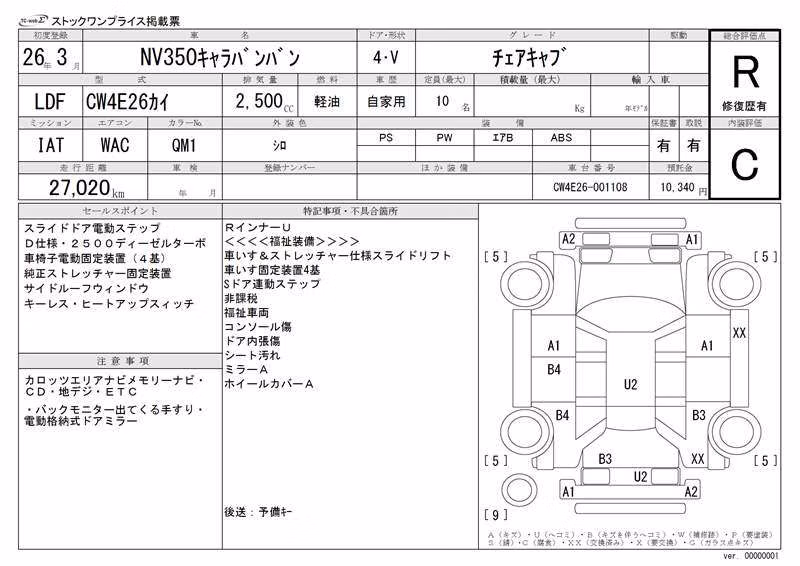 TC-webΣ ストックワンプライス掲載票
初度登録 車名 ドア・形状 グレード 駆動 総合評価点
26年 3月 NV350キャラバンバン 4・V チェアキャブ R
修復歴有
型式 排気量 燃料 車歴 定員(最大) 積載量(最大) 輸入車
LDF CW4E26カイ 2,500CC 軽油 自家用 10名 Kg 年モデル
ミッション エアコン カラーNo. 外装色 装備 保証書 取説 内装評価
IAT WAC QM1 シロ PS PW エアB ABS 有 有 C
走行距離 車検 登録ナンバー ほか装備 車台番号 預託金
27,020km 年 月 CW4E26-001108 10,340円
セールスポイント
スライドドア電動ステップ
D仕様・2500ディーゼルターボ
車椅子電動固定装置(4基)
純正ストレッチャー固定装置
サイドルーフウィンドウ
キーレス・ヒートアップスィッチ
注意事項
カロッツエリアナビメモリーナビ・
CD・地デジ・ETC
・バックモニター出てくる手すり・
電動格納式ドアミラー
特記事項・不具合箇所
RインナーU
<<<<福祉装備>>>>
車いす&ストレッチャー仕様スライドリフト
車いす固定装置4基
Sドア連動ステップ
非課税
福祉車両
コンソール傷
ドア内張傷
シート汚れ
ミラーA
ホイールカバーA
後送:予備キー
A2 A1
[5] [5]
XX
A1 A1
B4
U2
B4 B3
B3 XX
[5] [5]
U2
A1 A2
[9]
A(キズ)・U(ヘコミ)・B(キズを伴うヘコミ)・W(補修跡)・P(要塗装)
S(錆)・C(腐食)・XX(交換済み)・X(要交換)・G(ガラス点キズ)
ver. 00000001